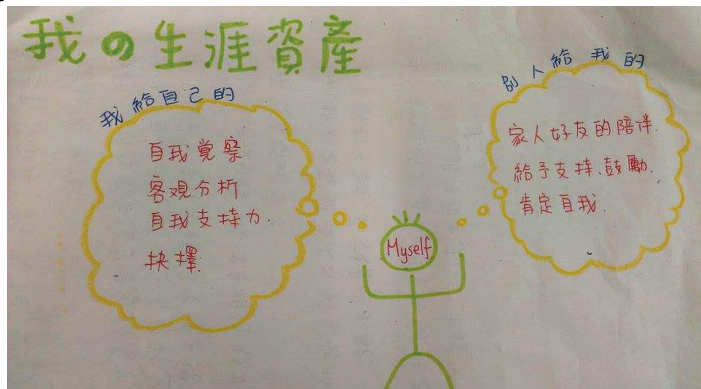 我の生涯資產
我給自己的
自我覺察
客观分析
自我支持力.
抉擇.
別人給我的
家人好友的陪伴.
給予支持.鼓勵.
肯定自我.
Myself